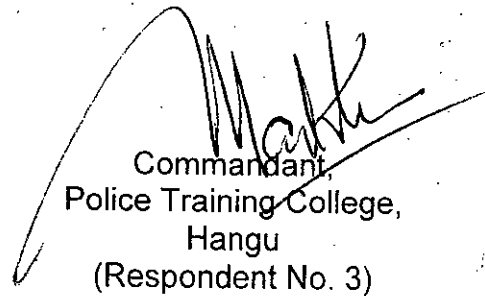 Commandant,
Police Training College,
Hangu
(Respondent No. 3)